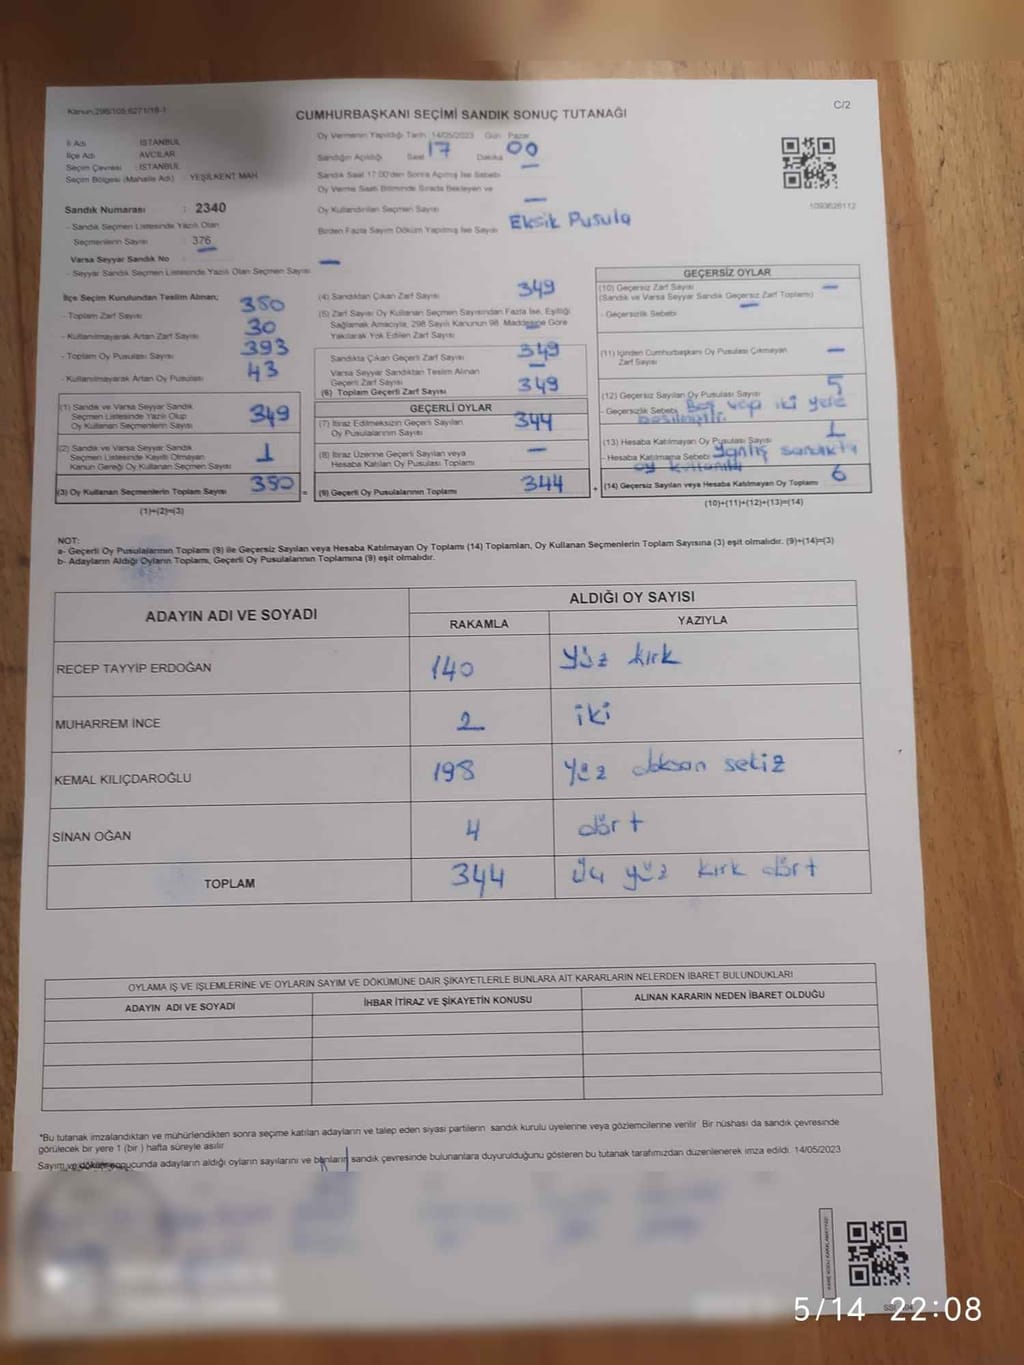 Kanun:298/105,6271/18-1
CUMHURBAŞKANI SEÇİMİ SANDIK SONUÇ TUTANAĞI
C/2
İl Adı : İSTANBUL
İlçe Adı : AVCILAR
Seçim Çevresi : İSTANBUL
Seçim Bölgesi (Mahalle Adı) : YEŞİLKENT MAH.
Sandık Numarası : 2340
- Sandık Seçmen Listesinde Yazılı Olan
Seçmenlerin Sayısı : 376
Varsa Seyyar Sandık No
- Seyyar Sandık Seçmen Listesinde Yazılı Olan Seçmen Sayısı —
Oy Vermenin Yapıldığı Tarih 14/05/2023 Gün Pazar
Sandığın Açıldığı Saat 17 Dakika 00
Sandık Saat 17:00'den Sonra Açılmış İse Sebebi —
Oy Verme Saati Bitiminde Sırada Bekleyen ve
Oy Kullandırılan Seçmen Sayısı —
Birden Fazla Sayım Döküm Yapılmış İse Sayısı Eksik Pusula
1093626112
İlçe Seçim Kurulundan Teslim Alınan;
- Toplam Zarf Sayısı 350
- Kullanılmayarak Artan Zarf Sayısı 30
- Toplam Oy Pusulası Sayısı 393
- Kullanılmayarak Artan Oy Pusulası 43
(1) Sandık ve Varsa Seyyar Sandık
Seçmen Listesinde Yazılı Olup
Oy Kullanan Seçmenlerin Sayısı 349
(2) Sandık ve Varsa Seyyar Sandık
Seçmen Listesinde Yazılı Olmayan
Kanun Gereği Oy Kullanan Seçmen Sayısı 1
(3) Oy Kullanan Seçmenlerin Toplam Sayısı 350 =
(1)+(2)=(3)
(4) Sandıktan Çıkan Zarf Sayısı 349
(5) Zarf Sayısı Oy Kullanan Seçmen Sayısından Fazla İse, Eşitliği
Sağlamak Amacıyla, 298 Sayılı Kanunun 98. Maddesine Göre
Yakılarak Yok Edilen Zarf Sayısı —
Sandıkta Çıkan Geçerli Zarf Sayısı 349
Varsa Seyyar Sandıktan Teslim Alınan
Geçerli Zarf Sayısı —
(6) Toplam Geçerli Zarf Sayısı 349
GEÇERLİ OYLAR
(7) İtiraz Edilmeksizin Geçerli Sayılan
Oy Pusulalarının Sayısı 344
(8) İtiraz Üzerine Geçerli Sayılan veya
Hesaba Katılan Oy Pusulası Toplamı —
(9) Geçerli Oy Pusulalarının Toplamı 344 +
GEÇERSİZ OYLAR
(10) Geçersiz Zarf Sayısı
(Sandık ve Varsa Seyyar Sandık Geçersiz Zarf Toplamı) —
- Geçersizlik Sebebi —
(11) İçinden Cumhurbaşkanı Oy Pusulası Çıkmayan
Zarf Sayısı —
(12) Geçersiz Sayılan Oy Pusulası Sayısı 5
- Geçersizlik Sebebi iki yere
basılmıştır.
(13) Hesaba Katılmayan Oy Pusulası Sayısı 1
- Hesaba Katılmama Sebebi Yanlış sandıkta
oy kullanıldı
(14) Geçersiz Sayılan veya Hesaba Katılmayan Oy Toplamı 6
(10)+(11)+(12)+(13)=(14)
NOT:
a- Geçerli Oy Pusulalarının Toplamı (9) ile Geçersiz Sayılan veya Hesaba Katılmayan Oy Toplamı (14) Toplamları, Oy Kullanan Seçmenlerin Toplam Sayısına (3) eşit olmalıdır. (9)+(14)=(3)
b- Adayların Aldığı Oyların Toplamı, Geçerli Oy Pusulalarının Toplamına (9) eşit olmalıdır.
ADAYIN ADI VE SOYADI
ALDIĞI OY SAYISI
RAKAMLA YAZIYLA
RECEP TAYYİP ERDOĞAN 140 Yüz kırk
MUHARREM İNCE 2 iki
KEMAL KILIÇDAROĞLU 198 Yüz doksan sekiz
SİNAN OĞAN 4 dört
TOPLAM 344 Üç yüz kırk dört
OYLAMA İŞ VE İŞLEMLERİNE VE OYLARIN SAYIM VE DÖKÜMÜNE DAİR ŞİKAYETLERLE BUNLARA AİT KARARLARIN NELERDEN İBARET BULUNDUKLARI
ADAYIN ADI VE SOYADI İHBAR İTİRAZ VE ŞİKAYETİN KONUSU ALINAN KARARIN NEDEN İBARET OLDUĞU
*Bu tutanak imzalandıktan ve mühürlendikten sonra seçime katılan adayların ve talep eden siyasi partilerin sandık kurulu üyelerine veya gözlemcilerine verilir. Bir nüshası da sandık çevresinde
görülecek bir yere 1 (bir ) hafta süreyle asılır.
Sayım ve döküm sonucunda adayların aldığı oyların sayılarını ve bunların sandık çevresinde bulunanlara duyurulduğunu gösteren bu tutanak tarafımızdan düzenlenerek imza edildi. 14/05/2023
5/14 22:08